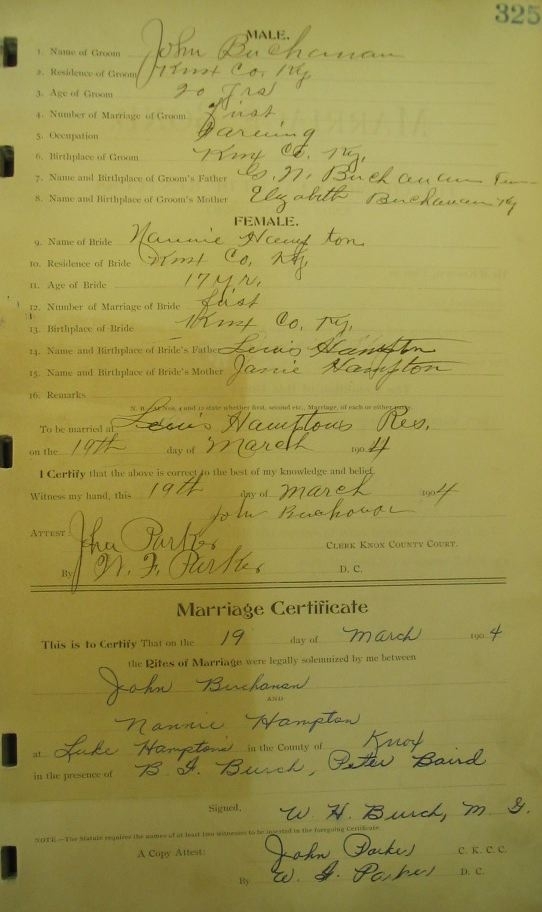 325
MALE.
1. Name of Groom John Buchanan
2. Residence of Groom Knox Co. Ky
3. Age of Groom 20 Yrs
4. Number of Marriage of Groom First
5. Occupation Farming
6. Birthplace of Groom Knox Co. Ky.
7. Name and Birthplace of Groom's Father G. N. Buchanan
8. Name and Birthplace of Groom's Mother Elizabeth Buchanan Ky
FEMALE.
9. Name of Bride Nannie Hampton
10. Residence of Bride Knox Co, Ky.
11. Age of Bride 17 yr.
12. Number of Marriage of Bride first
13. Birthplace of Bride Knox Co. Ky.
14. Name and Birthplace of Bride's Father Lewis Hampton
15. Name and Birthplace of Bride's Mother Janie Hampton
16. Remarks
N. B. At Nos. 4 and 12 state whether first, second etc., Marriage, of each or either party.
To be married at Lewis Hamptons Res.
on the 19th day of March 1904
I Certify that the above is correct to the best of my knowledge and belief.
Witness my hand, this 19th day of March 1904
John Buchanan
ATTEST: John Parker CLERK KNOX COUNTY COURT.
By W. F. Parker D. C.
Marriage Certificate
This is to Certify That on the 19 day of March 1904
the Rites of Marriage were legally solemnized by me between
John Buchanan
AND
Nannie Hampton
at Luke Hampton's in the County of Knox
in the presence of B. F. Burch, Peter Baird
Signed, W. H. Burch, M. G.
NOTE.—The Statute requires the names of at least two witnesses to be inserted in the foregoing Certificate.
A Copy Attest: John Parker C. K. C. C.
By W. F. Parker D. C.